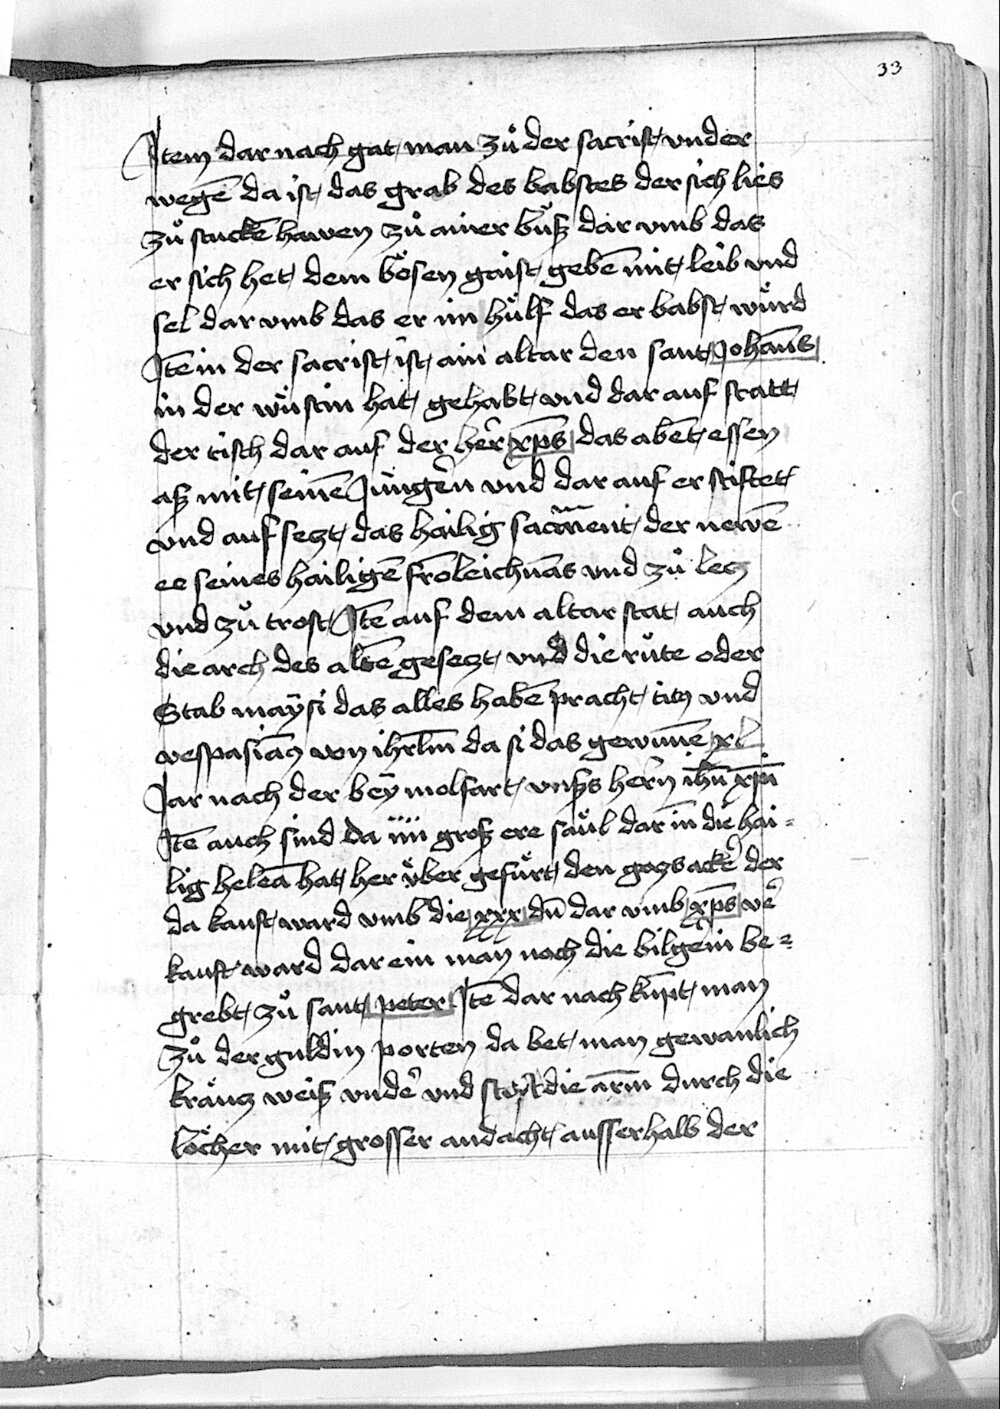 33
Item dar nach gat man zuͦ der sacrist vnder
wegē da ist das grab des babstes der sich lies
zuͦ stuckē hawen zuͦ ainer buͦß dar vmb das
er sich het dem boͤsen gaist gebē mit leib vnd
sel dar vmb das er im huͤlf das er babst wuͤrd
Itē in der sacrist ist ain altar den sant Johan̄s
in der wuͤstin hat gehabt vnd dar auf statt
der tisch dar auf der her̄ xp̄s das abēt essen
aß mit seinē Jungern vnd dar auf er stiftet
vnd auf sezt das hailig sacrament der newē
ee seines hailigē fro̅leichnās vnd zuͦ lecz
vnd zuͦ trost Itē auf dem altar stat auch
die arch des altē gesetzt vnd die ruͤte oder
Stab maÿsi das alles habē pracht tito vnd
vespasiāo von ihrl̄m da si das gewunnē xl
Jar nach der beÿ molfart vnsers hern̄ ihū xp̄i
Itē auch sind da iiii groß ere saͤul dar in die hai=
lig helēa hat her vͤber gefuͤrt den gozsackē der
da kauft ward vmb die xxx dn̄ dar vmb xp̄s v'e
kauft ward dar ein man noch die bilgein be=
grebt zuͦ sant peter Itē dar nach kūpt man
zuͦ der guldin porten da bet man gewanlich
kraͤncz weiß vnde' vnd stost die arm durch die
loͤcher mit grosser andacht ausserhalb der